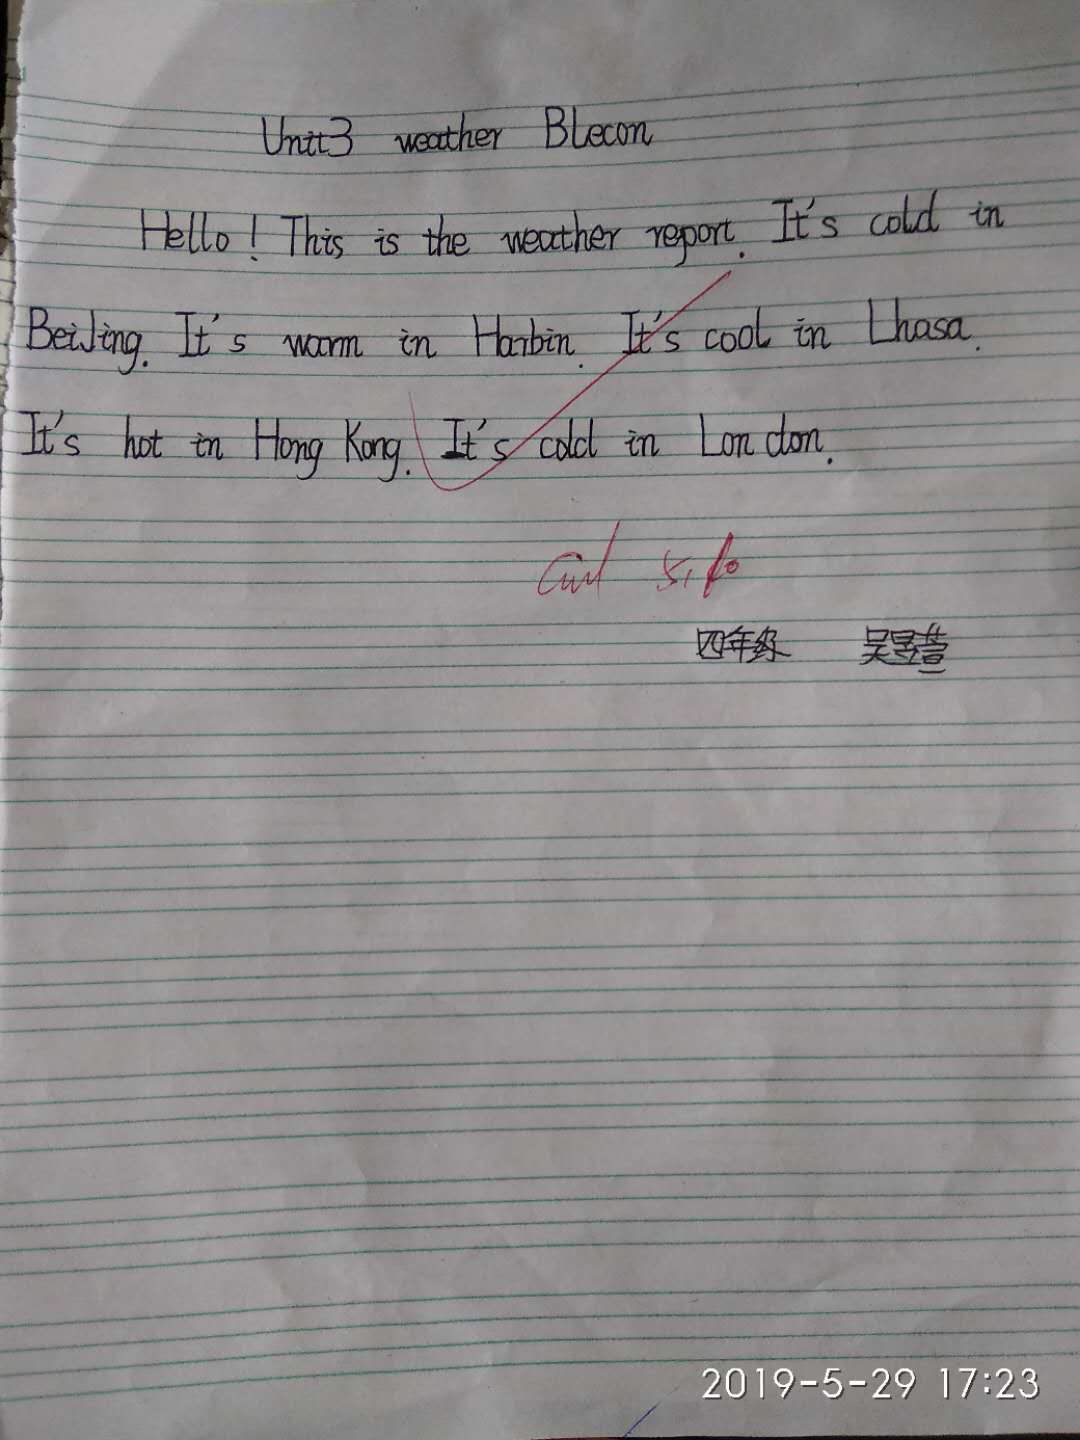 Unit3 weather BLecon
Hello! This is the weather report. It's cold in
BeiJing. It's warm in Harbin. It's cool in Lhasa.
It's hot in Hong Kong. It's cold in London.
四年级 吴昱萱
2019-5-29 17:23